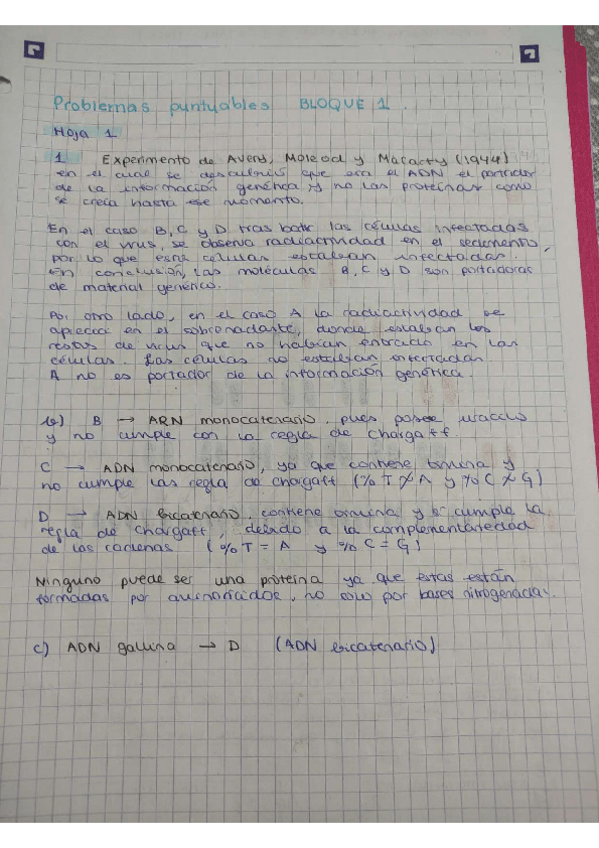 Problemas puntuables BLOQUE 1.
Hoja 1
1 Experimento de Avery, Mcleod y Macarty (1944)
en el cual se descubrió que era el ADN el portador
de la información genética y no las proteínas como
se creía hasta ese momento.
En el caso B, C y D tras batir las células infectadas
con el virus, se observa radiactividad en el sedimento,
por lo que esas células estaban infectadas.
En conclusión, las moléculas B, C y D son portadoras
de material genético.
Por otro lado, en el caso A la radiactividad se
aprecia en el sobrenadante, donde estaban los
restos de virus que no habían entrado en las
células. Las células no estaban infectadas.
A no es portador de la información genética.
b) B → ARN monocatenario, pues posee uracilo
y no cumple con la regla de Chargaff.
C → ADN monocatenario, ya que contiene timina y
no cumple las regla de Chargaff (% T ≠ A y % C ≠ G)
D → ADN bicatenario, contiene timina y sí cumple la
regla de Chargaff, debido a la complementariedad
de las cadenas (% T = A y % C = G)
Ninguno puede ser una proteína ya que estas están
formadas por aminoácidos, no solo por bases nitrogenadas.
c) ADN gallina → D (ADN bicatenario)